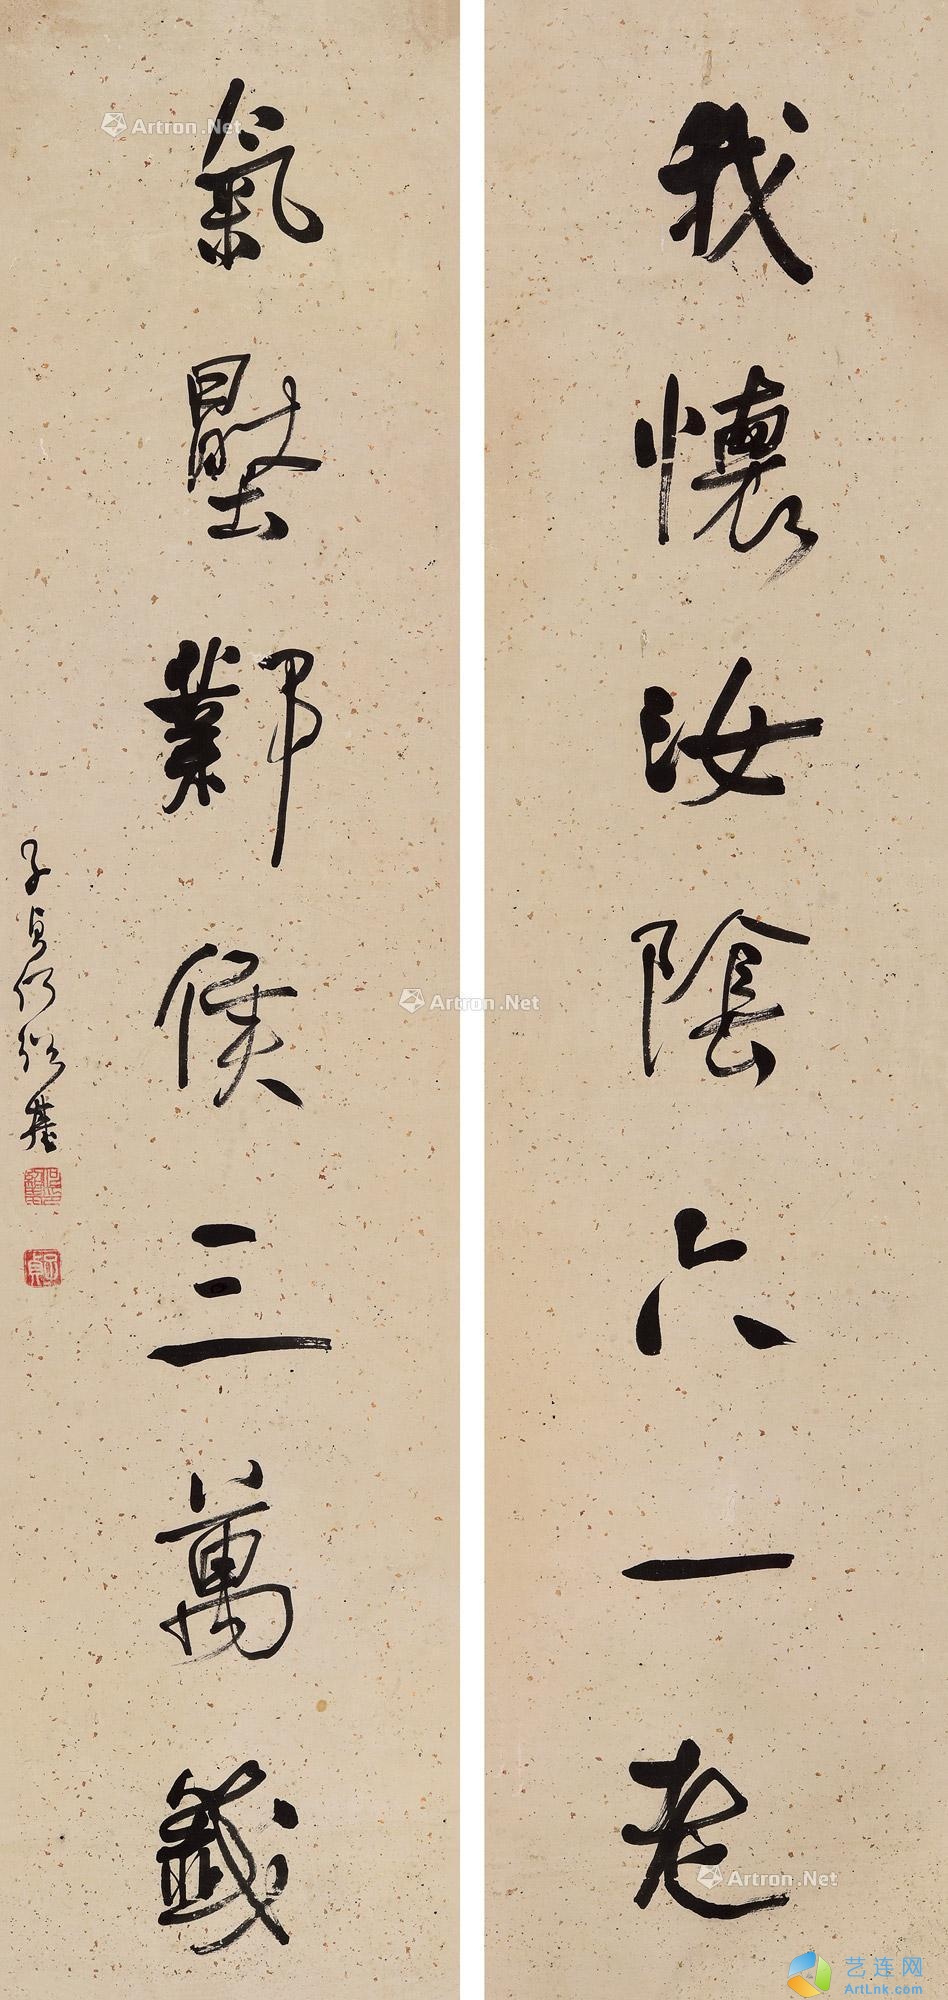 我懷汝陰六一老
氣壓鄴侯三萬籤
子貞何紹基
何紹基印
子貞
Artron.Net
Artron.Net
Artron.Net
艺连网
ArtLnk.com